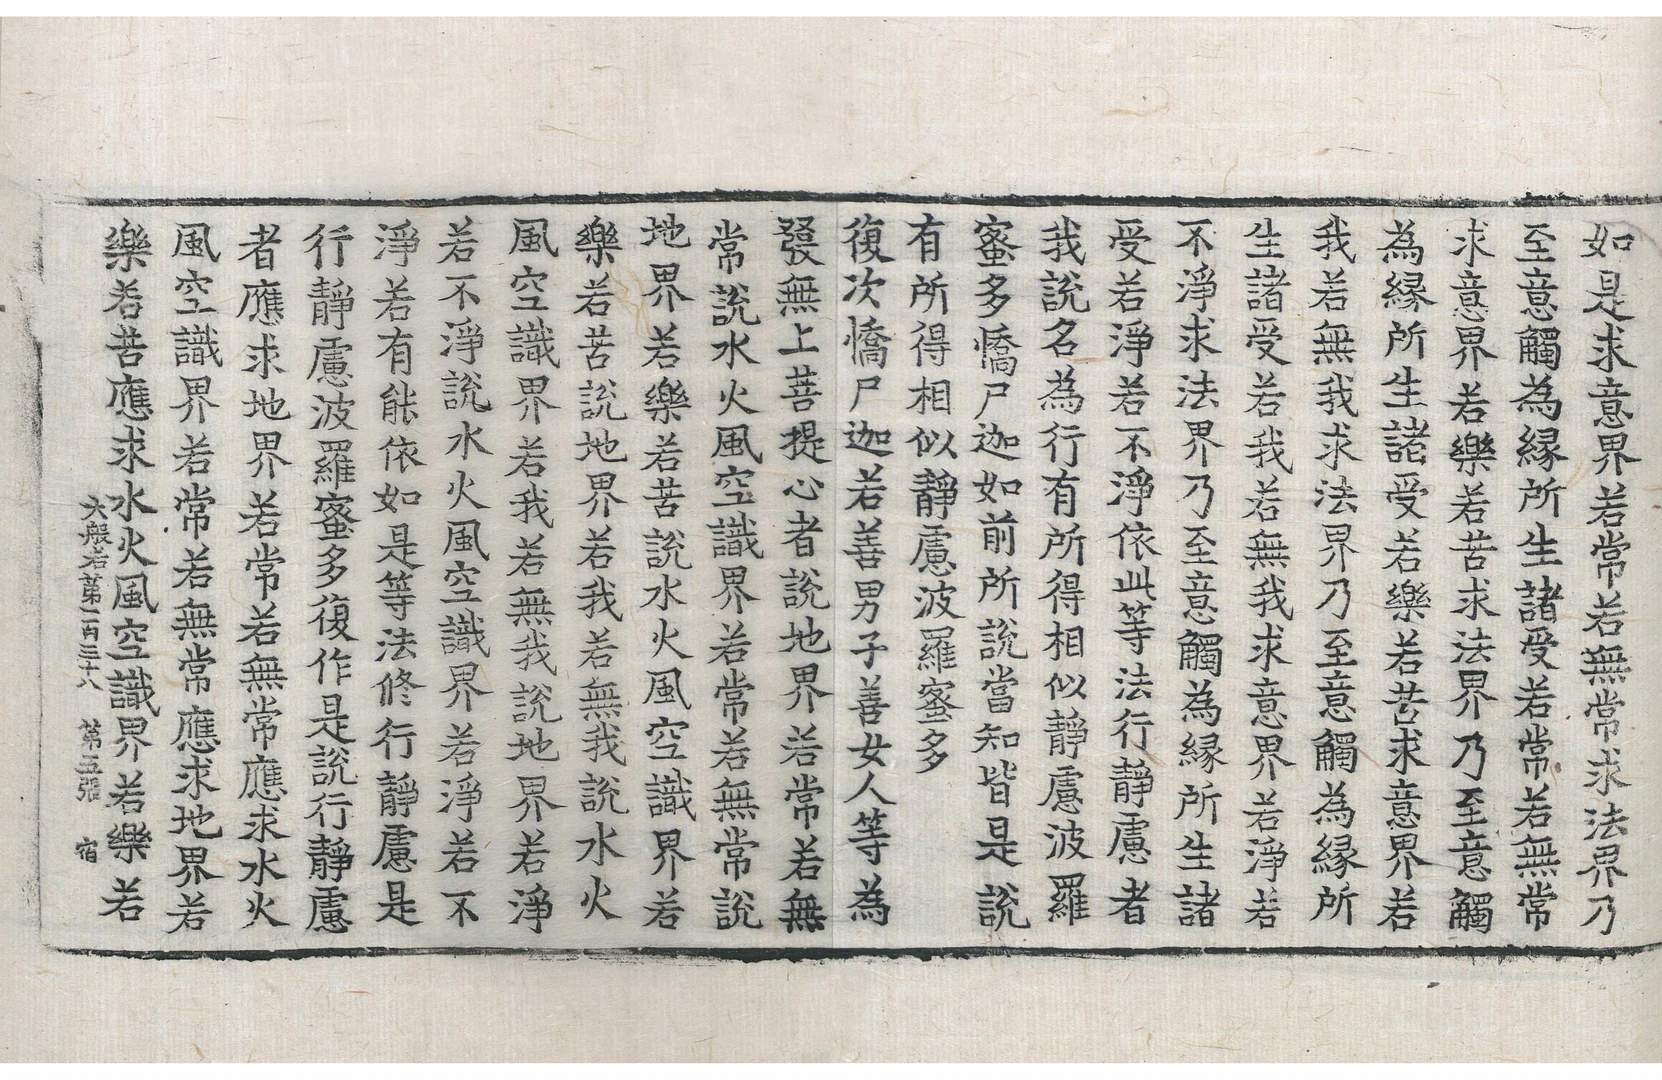 如是求意界若常若無常求法界乃
至意觸為縁所生諸受若常若無常
求意界若樂若苦求法界乃至意觸
為縁所生諸受若樂若苦求意界若
我若無我求法界乃至意觸為縁所
生諸受若我若無我求意界若淨若
不淨求法界乃至意觸為縁所生諸
受若淨若不淨依此等法行靜慮者
我說名為行有所得相似靜慮波羅
蜜多憍尸迦如前所說當知皆是說
有所得相似靜慮波羅蜜多
復次憍尸迦若善男子善女人等為
發無上菩提心者說地界若常若無
常說水火風空識界若常若無常說
地界若樂若苦說水火風空識界若
樂若苦說地界若我若無我說水火
風空識界若我若無我說地界若淨
若不淨說水火風空識界若淨若不
淨若有能依如是等法修行靜慮是
行靜慮波羅蜜多復作是說行靜慮
者應求地界若常若無常應求水火
風空識界若常若無常應求地界若
樂若苦應求水火風空識界若樂若
大般若第一百三十八 第五張 宿